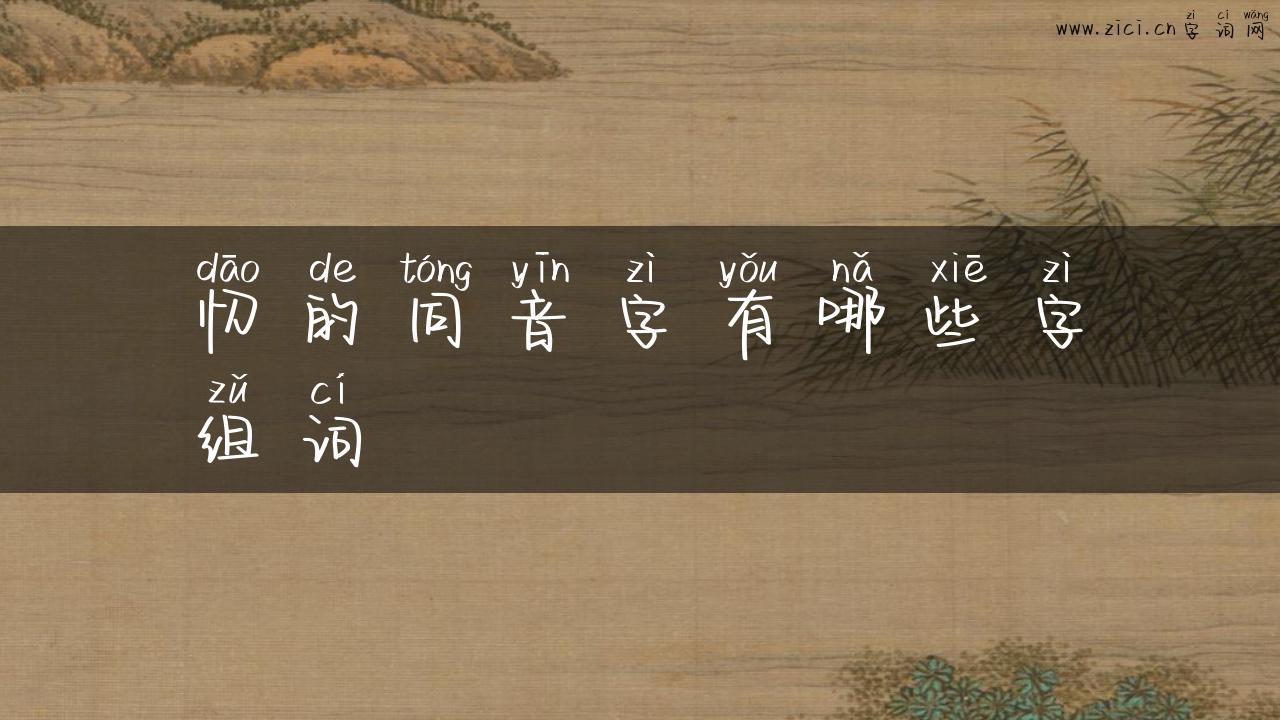 zì cí wǎng
www.zici.cn字词网
dāo de tóng yīn zì yǒu nǎ xiē zì
忉的同音字有哪些字
zǔ cí
组词